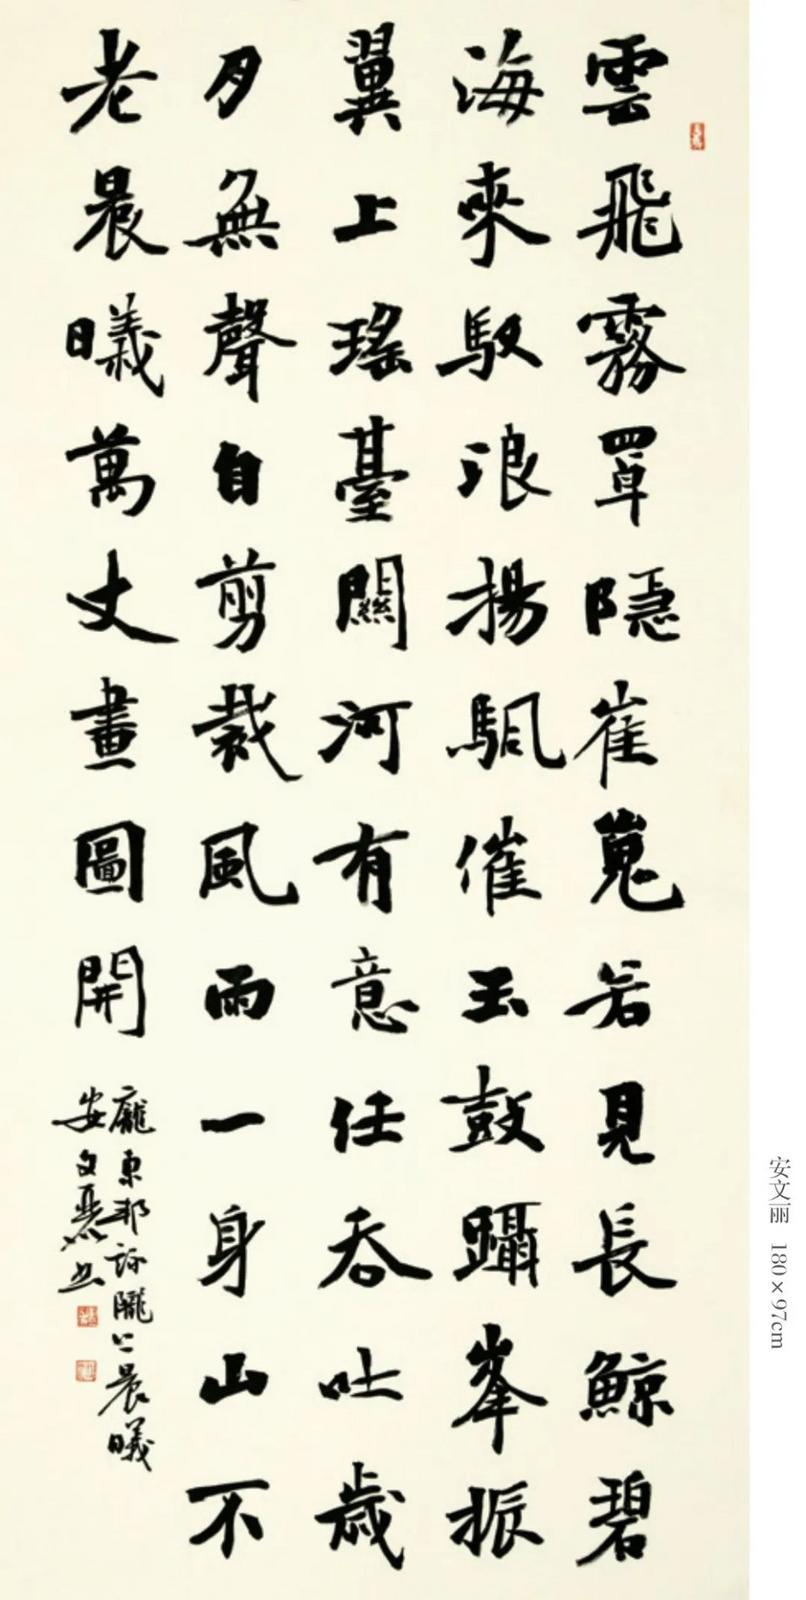 雲飛霧罩隐崔嵬若見長鯨碧
海來馭浪揚颿催玉鼓躡峯振
翼上瑤臺關河有意任吞吐歲
月無聲自剪裁風雨一身山不
老晨曦萬丈畫圖開
龐東邦詩隴上晨曦
安文麗书
安文丽 180×97cm